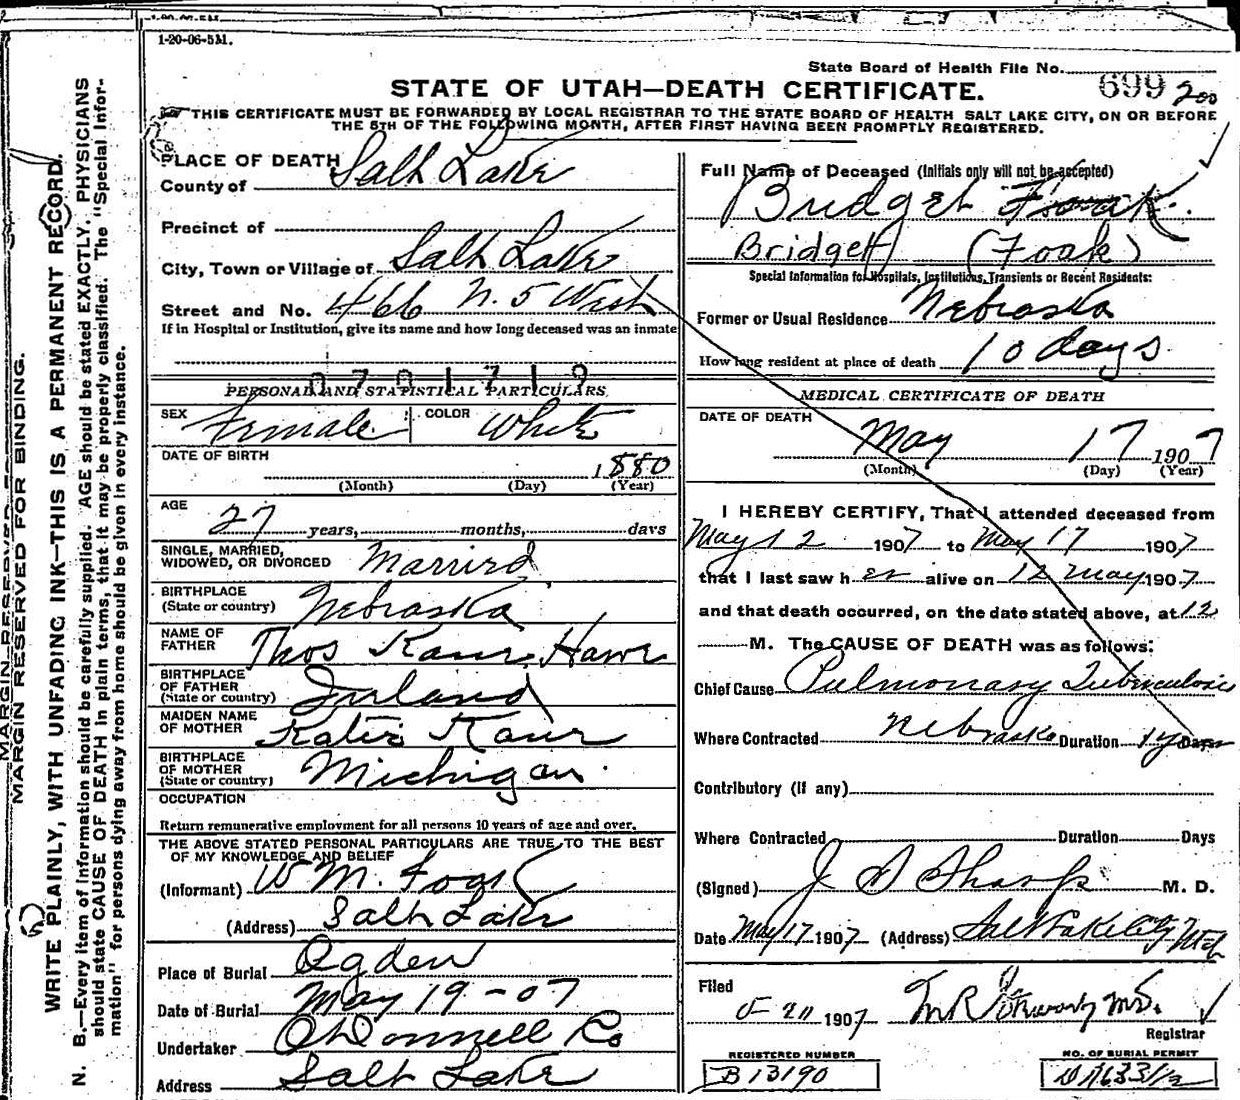 1-20-06-5M.
State Board of Health File No.
699 200
STATE OF UTAH—DEATH CERTIFICATE.
THIS CERTIFICATE MUST BE FORWARDED BY LOCAL REGISTRAR TO THE STATE BOARD OF HEALTH SALT LAKE CITY, ON OR BEFORE
THE 5TH OF THE FOLLOWING MONTH, AFTER FIRST HAVING BEEN PROMPTLY REGISTERED.
MARGIN RESERVED FOR BINDING.
WRITE PLAINLY, WITH UNFADING INK—THIS IS A PERMANENT RECORD.
N. B.—Every item of information should be carefully supplied. AGE should be stated EXACTLY. PHYSICIANS
should state CAUSE OF DEATH in plain terms, that it may be properly classified. The "Special Infor-
mation" for persons dying away from home should be given in every instance.
PLACE OF DEATH
County of Salt Lake
Precinct of
City, Town or Village of Salt Lake
Street and No. 466 N. 5 West
If in Hospital or Institution, give its name and how long deceased was an inmate
PERSONAL AND STATISTICAL PARTICULARS
SEX Female COLOR White
DATE OF BIRTH 1880
(Month) (Day) (Year)
AGE 27 years, months, days
SINGLE, MARRIED,
WIDOWED, OR DIVORCED Married
BIRTHPLACE
(State or country) Nebraska
NAME OF
FATHER Thos
BIRTHPLACE
OF FATHER
(State or country) Irland
MAIDEN NAME
OF MOTHER Katie
BIRTHPLACE
OF MOTHER
(State or country) Michigan.
OCCUPATION
Return remunerative employment for all persons 10 years of age and over.
THE ABOVE STATED PERSONAL PARTICULARS ARE TRUE TO THE BEST
OF MY KNOWLEDGE AND BELIEF
(Informant) W M. Foak
(Address) Salt Lake
Place of Burial Ogden
Date of Burial May 19-07
Undertaker O'Donnell Co
Address Salt Lake
Full Name of Deceased (Initials only will not be accepted)
Bridget Foak.
Bridget (Foak)
Special Information for Hospitals, Institutions, Transients or Recent Residents:
Former or Usual Residence Nebraska
How long resident at place of death 10 days
MEDICAL CERTIFICATE OF DEATH
DATE OF DEATH
May 17 1907
(Month) (Day) (Year)
I HEREBY CERTIFY, That I attended deceased from
May 12 1907 to May 17 1907
that I last saw her alive on 12 May 1907
and that death occurred, on the date stated above, at 12
M. The CAUSE OF DEATH was as follows:
Chief Cause Pulmonary Tuberculosis
Where Contracted Nebraska Duration 1 y Days
Contributory (if any)
Where Contracted Duration Days
(Signed) J S Sharp M. D.
Date May 17 1907 (Address) Salt Lake City Utah
Filed
5-20 1907
Registrar
REGISTERED NUMBER
B 13190
NO. OF BURIAL PERMIT